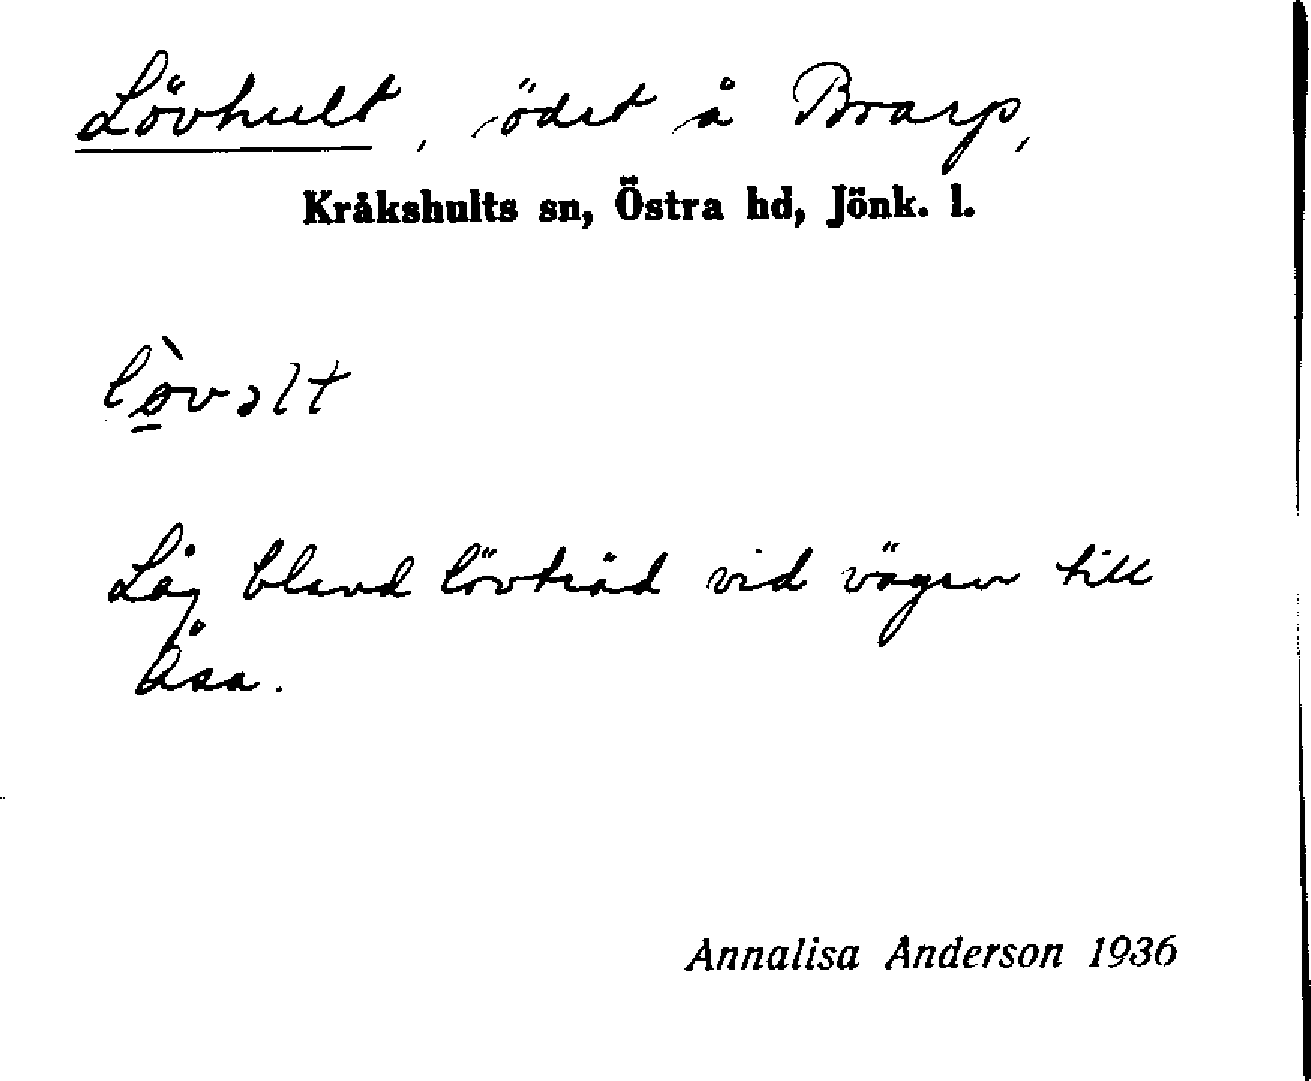 Lövhult, ödet å Brarp,
Kråkshults sn, Östra hd, Jönk. l.
lø̠̀vəlt
Låg bland lövträd vid vägen till
Åsa.
Annalisa Anderson 1936